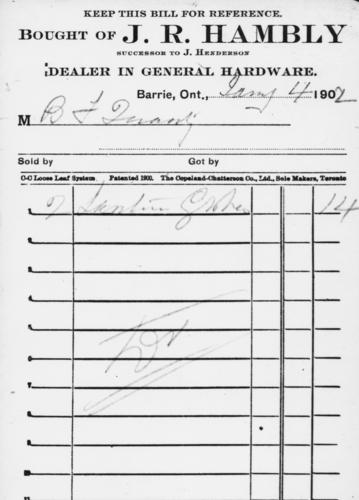 KEEP THIS BILL FOR REFERENCE.
BOUGHT OF J. R. HAMBLY
SUCCESSOR TO J. HENDERSON
DEALER IN GENERAL HARDWARE.
Barrie, Ont., Jany 4 1902
M B F
Sold by Got by
C-C Loose Leaf System. Patented 1900. The Copeland-Chatterson Co., Ltd., Sole Makers, Toronto
1 Lantern Globes 14
2
3
4
5
6
7
8
9
10
11